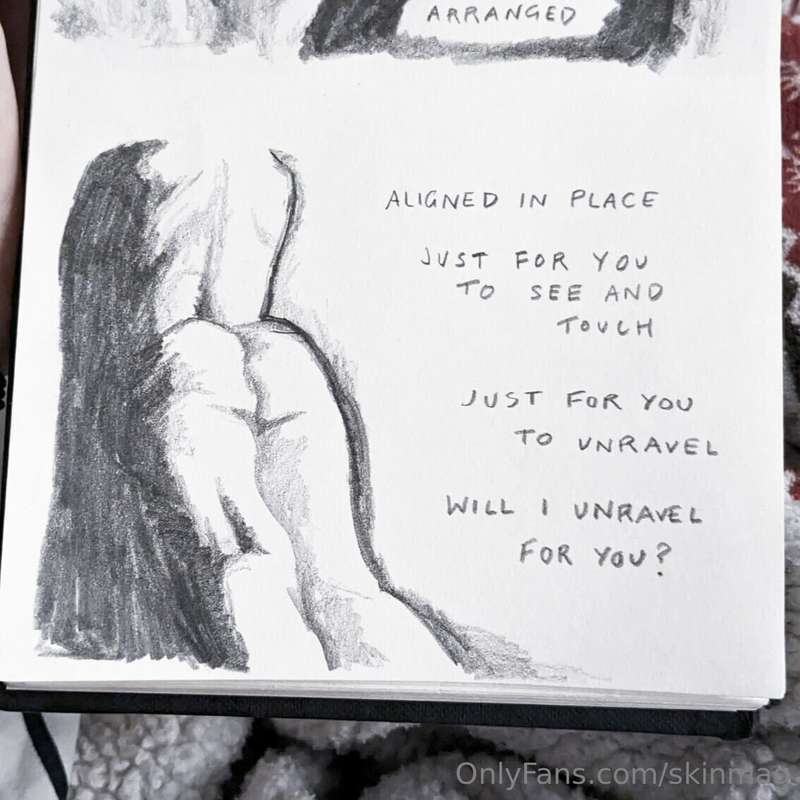 ARRANGED
ALIGNED IN PLACE
JUST FOR YOU
TO SEE AND
TOUCH
JUST FOR YOU
TO UNRAVEL
WILL I UNRAVEL
FOR YOU?
OnlyFans.com/skinmag